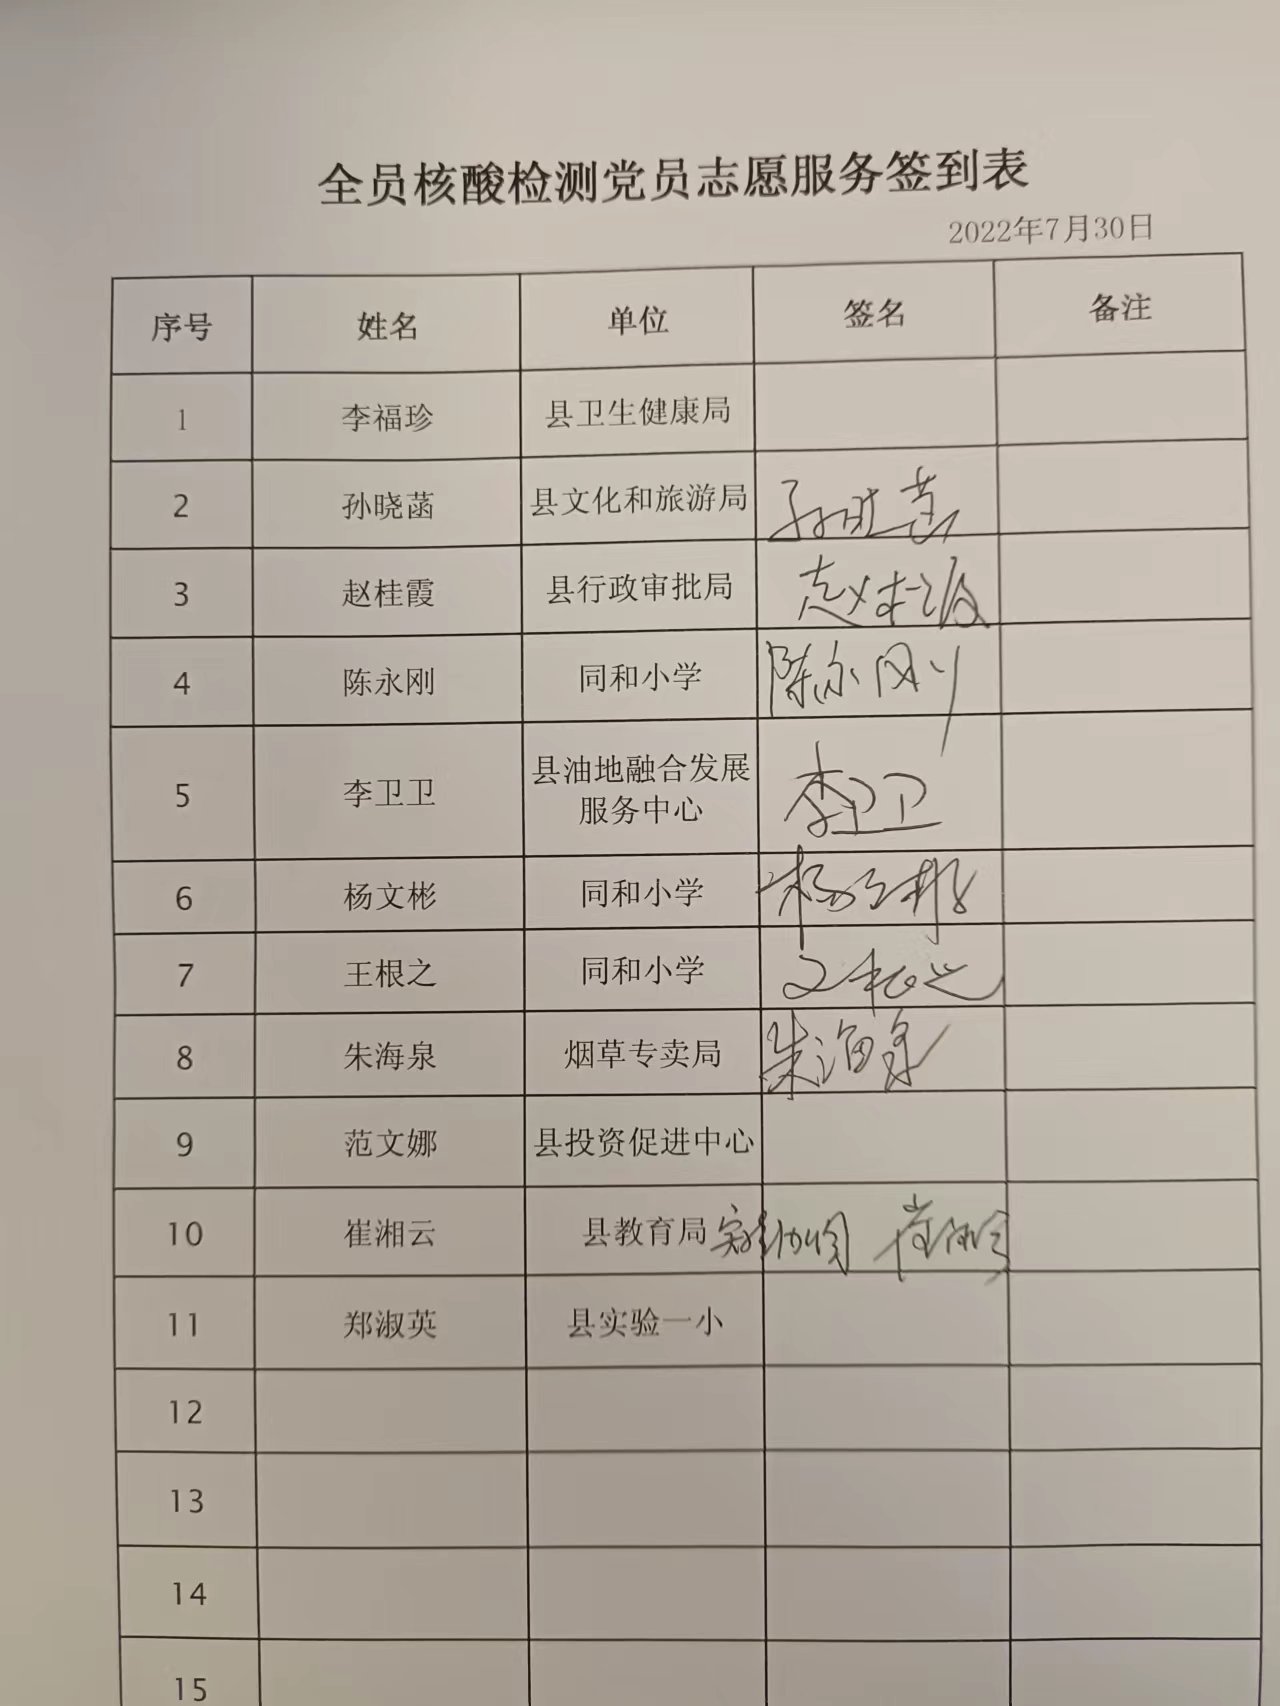 全员核酸检测党员志愿服务签到表
2022年7月30日
序号 姓名 单位 签名 备注
1 李福珍 县卫生健康局
2 孙晓菡 县文化和旅游局 孙晓菡
3 赵桂霞 县行政审批局 赵桂霞
4 陈永刚 同和小学 陈永刚
5 李卫卫 县油地融合发展
服务中心 李卫卫
6 杨文彬 同和小学 杨文彬
7 王根之 同和小学 王根之
8 朱海泉 烟草专卖局 朱海泉
9 范文娜 县投资促进中心
10 崔湘云 县教育局
11 郑淑英 县实验一小
12
13
14
15